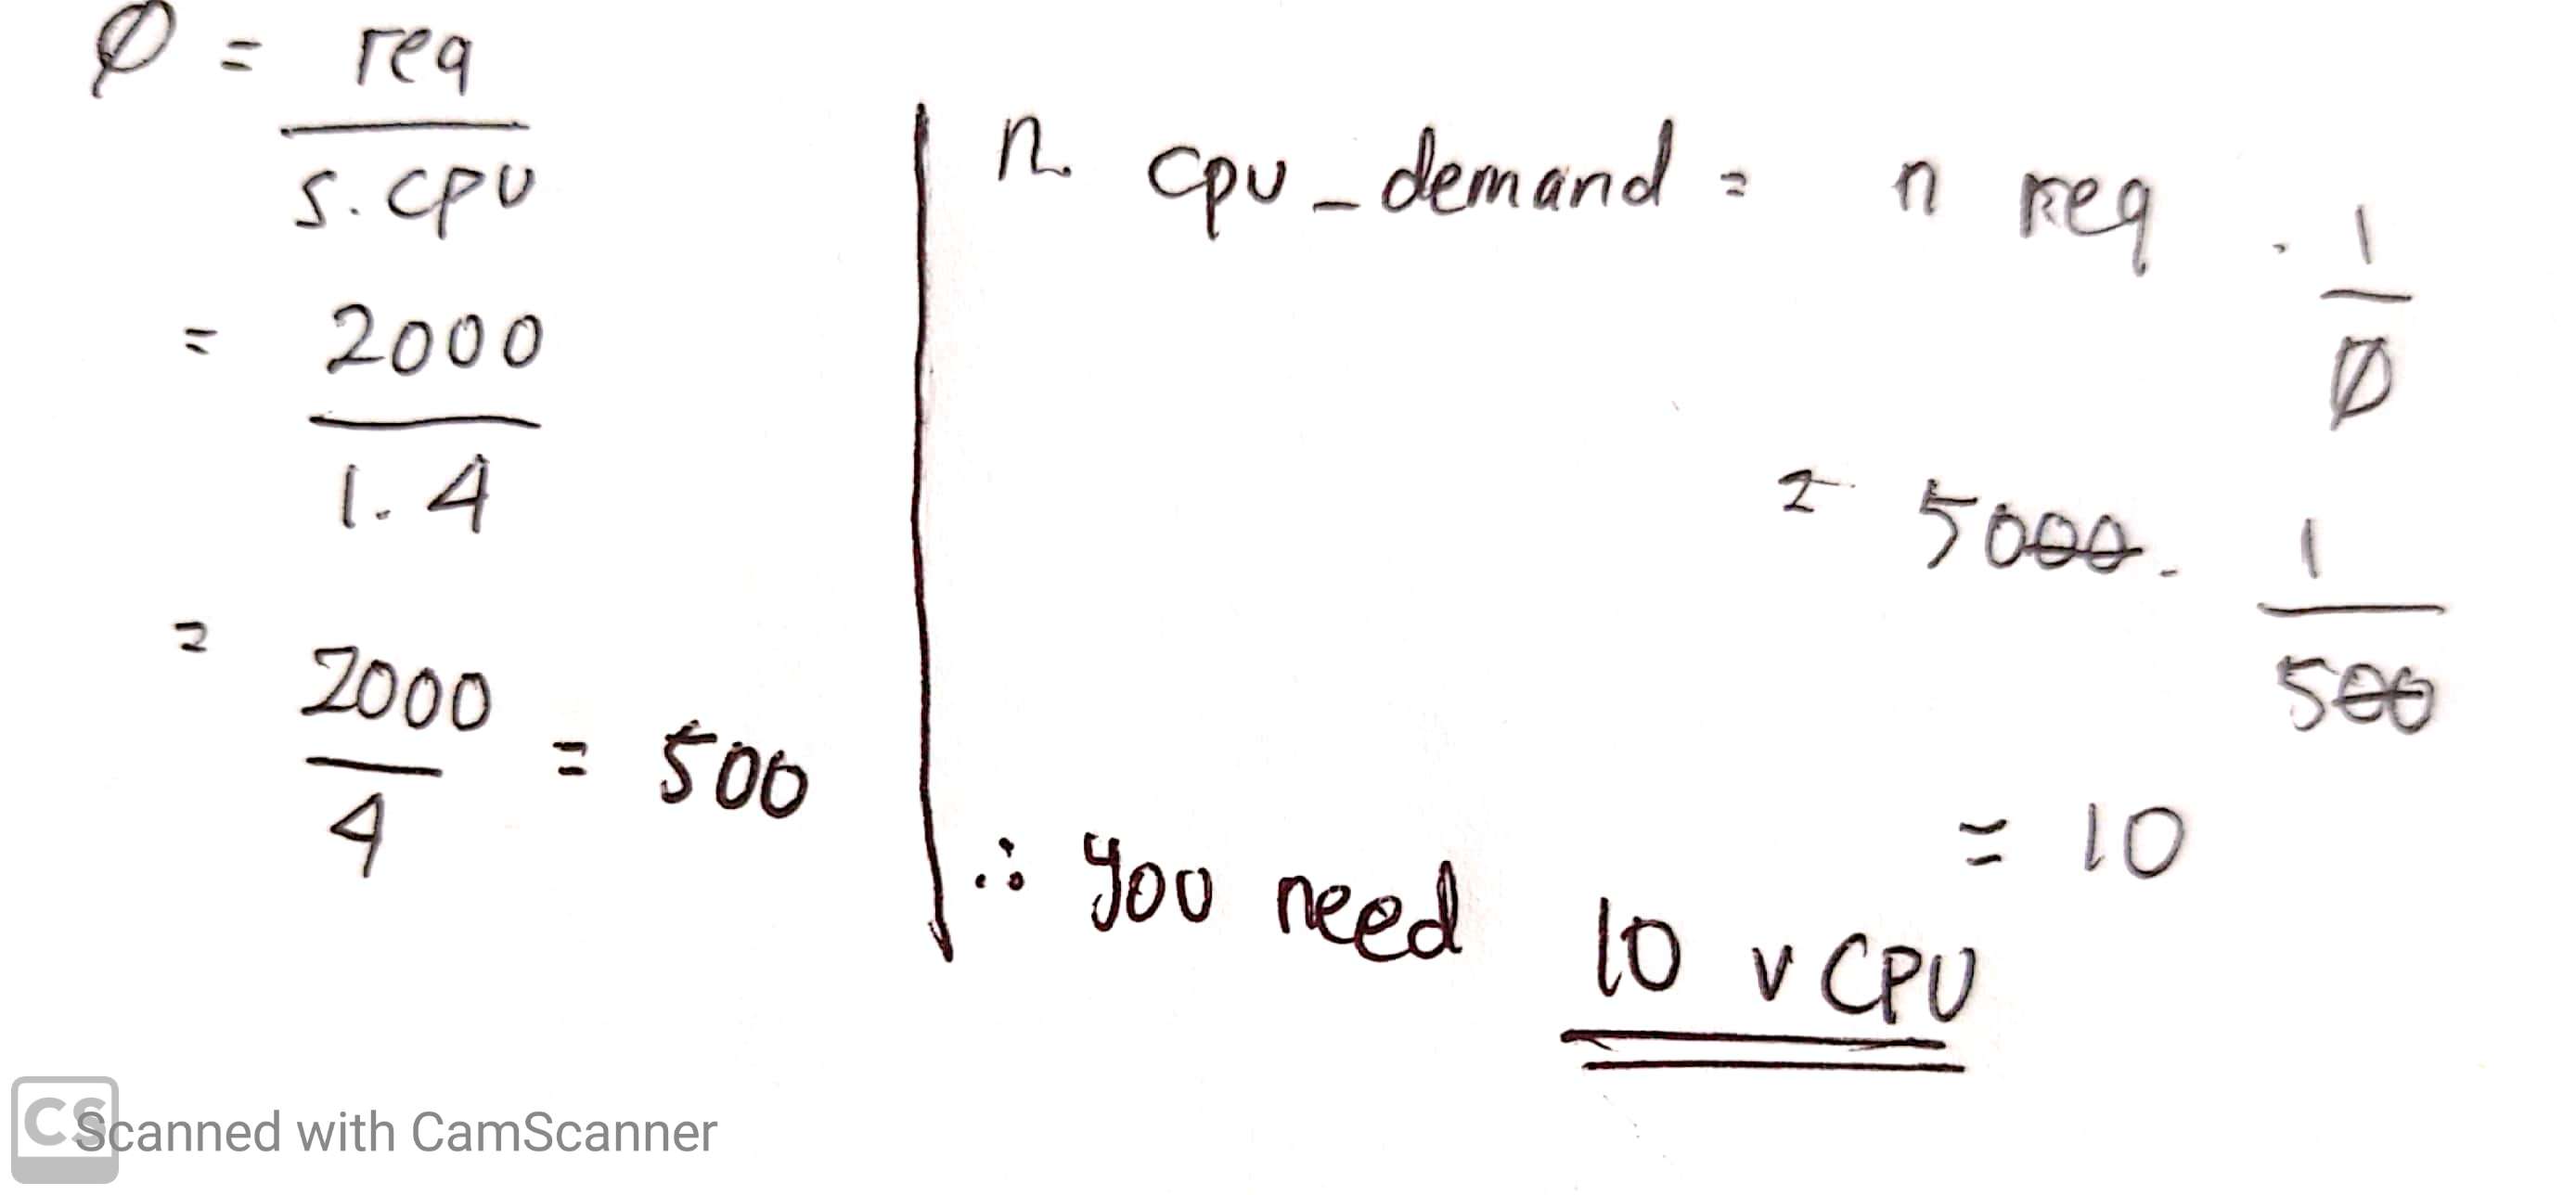 Ø = req
s. cpu
= 2000
1. 4
= 2000
4
= 500
n. cpu_demand = n req . 1
Ø
= 5000. 1
500
= 10
∴ you need 10 vCPU
CS Scanned with CamScanner